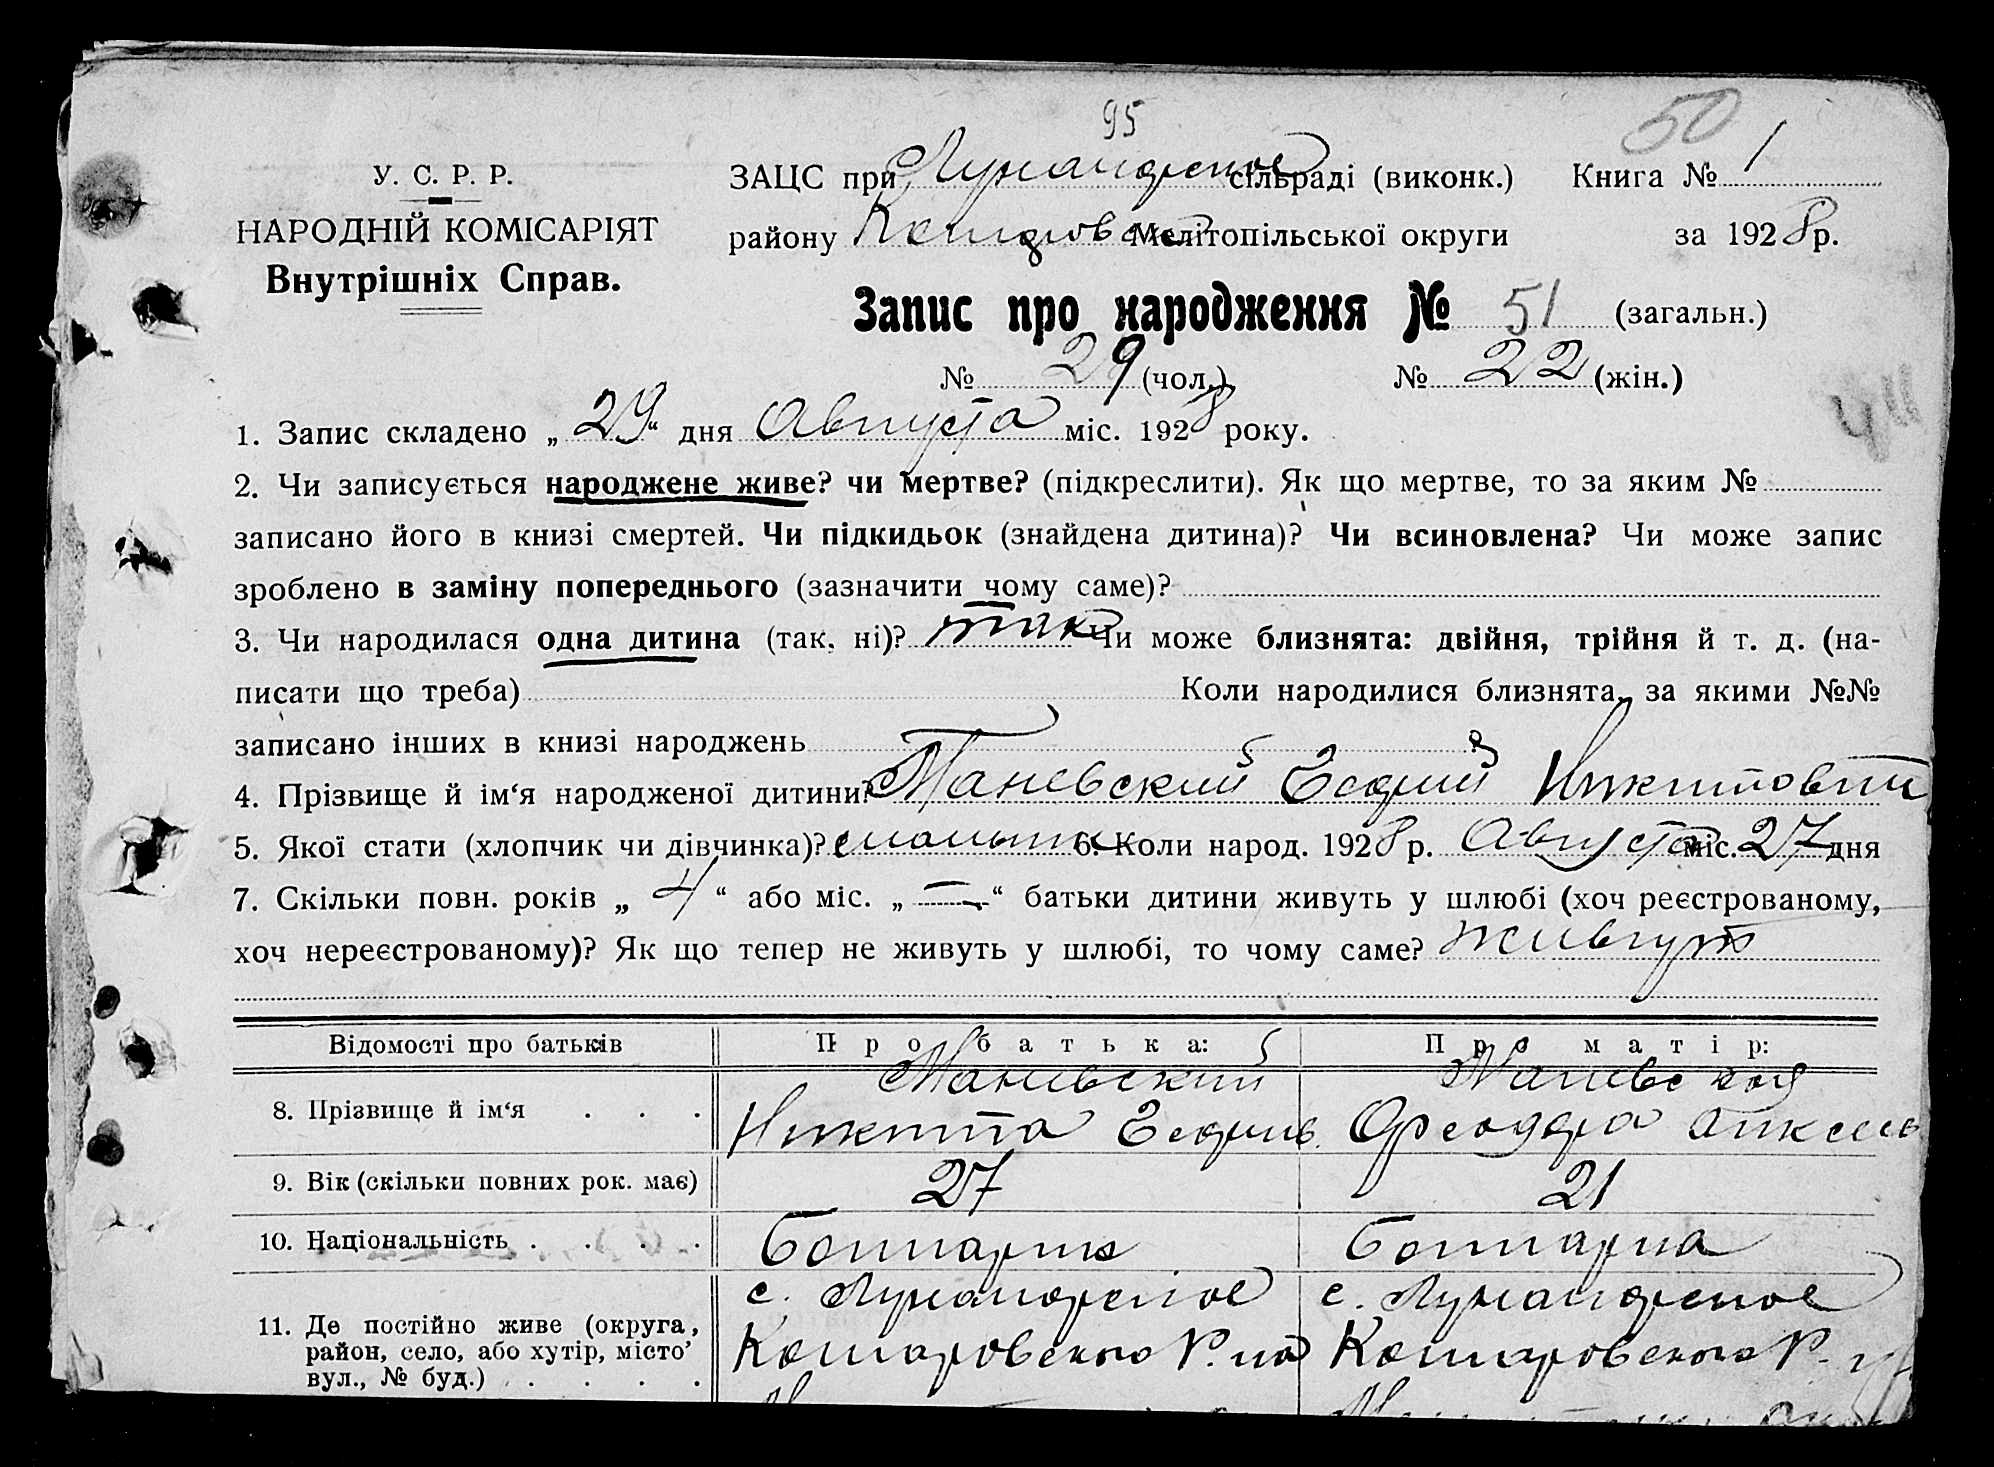 95
50
У. С. Р. Р.
НАРОДНІЙ КОМІСАРІЯТ
Внутрішніх Справ.
ЗАЦС при сільраді (виконк.) Книга № 1
району Мелітопільської округи за 1928 р.
Запис про народження № 51 (загальн.)
№ 29 (чол.) № 22 (жін.)
1. Запис складено „29“ дня Августа міс. 1928 року.
2. Чи записується народжене живе? чи мертве? (підкреслити). Як що мертве, то за яким №
записано його в книзі смертей. Чи підкидьок (знайдена дитина)? Чи всиновлена? Чи може запис
зроблено в заміну попереднього (зазначити чому саме)?
3. Чи народилася одна дитина (так, ні)? так Чи може близнята: двійня, трійня й т. д. (на-
писати що треба) Коли народилися близнята, за якими №№
записано інших в книзі народжень
4. Прізвище й ім‘я народженої дитини? Маневский Никитович
5. Якої стати (хлопчик чи дівчинка)? 6. Коли народ. 1928 р. Августа міс. 27 дня
7. Скільки повн. років „4“ або міс. „—“ батьки дитини живуть у шлюбі (хоч реєстрованому,
хоч нереєстрованому)? Як що тепер не живуть у шлюбі, то чому саме? живут
Відомості про батьків Про батька: Про матір:
8. Прізвище й ім‘я . . . Маневский Маневская
Никита Феодора
9. Вік (скільки повних рок. має) 27 21
10. Національність . . . . Болгарин Болгарка
11. Де постійно живе (округа,
район, село, або хутір, місто,
вул., № буд.) . . . .
с. с.